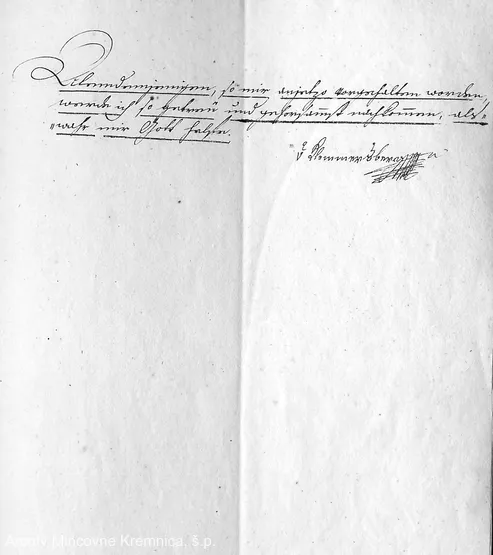 Allemdemjenigen, so mir anjetzo vorgehalten worden,
werde ich so getreü und gehorsamst nachkommen, als
wahr mir Gott helfe.
Archív Mincovne Kremnica, š.p.